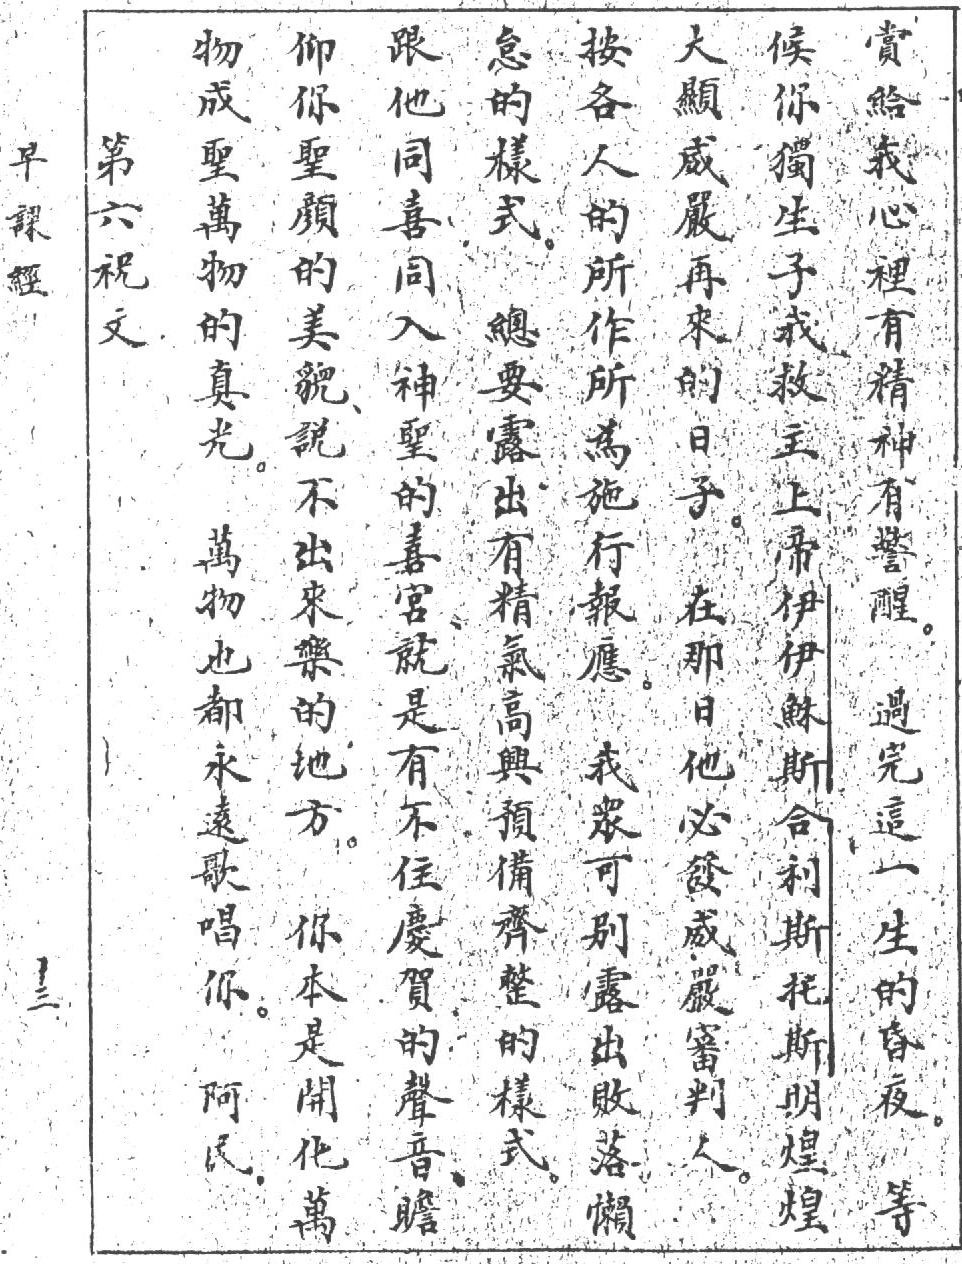 賞給我心裡有精神有警醒。　過完這一生的昏夜。　等
候你獨生子我救主上帝伊伊穌斯合利斯托斯明煌煌
大顯威嚴再來的日子。　在那日他必發威嚴審判人。
按各人的所作所為施行報應。　我衆可別露出敗落懶
怠的樣式。　總要露出有精氣高興預備齊整的樣式。
跟他同喜同入神聖的喜宮、就是有不住慶賀的聲音、瞻
仰你聖顏的美貌、說不出來樂的地方。　你本是開化萬
物成聖萬物的真光。　萬物也都永遠歌唱你。　阿民。
第六祝文
早課經
十三